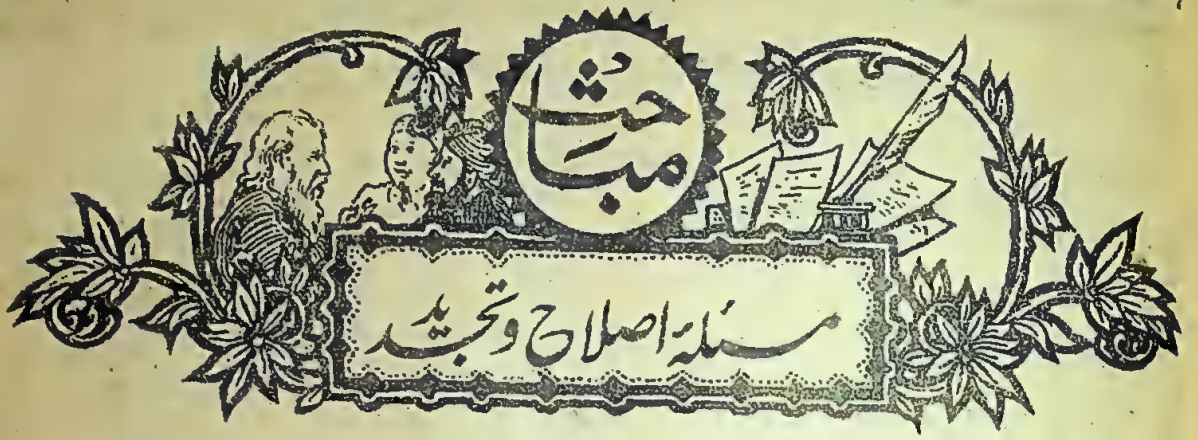 مباحث
مسئلۂ اصلاح و تجدید